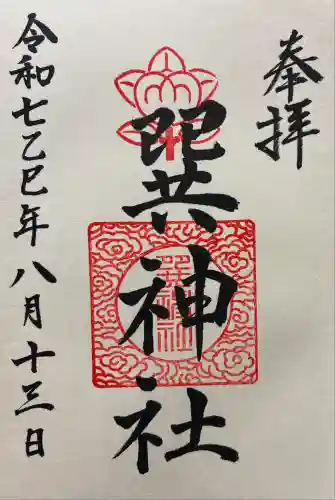 奉拝
巽神社
令和七乙巳年八月十三日